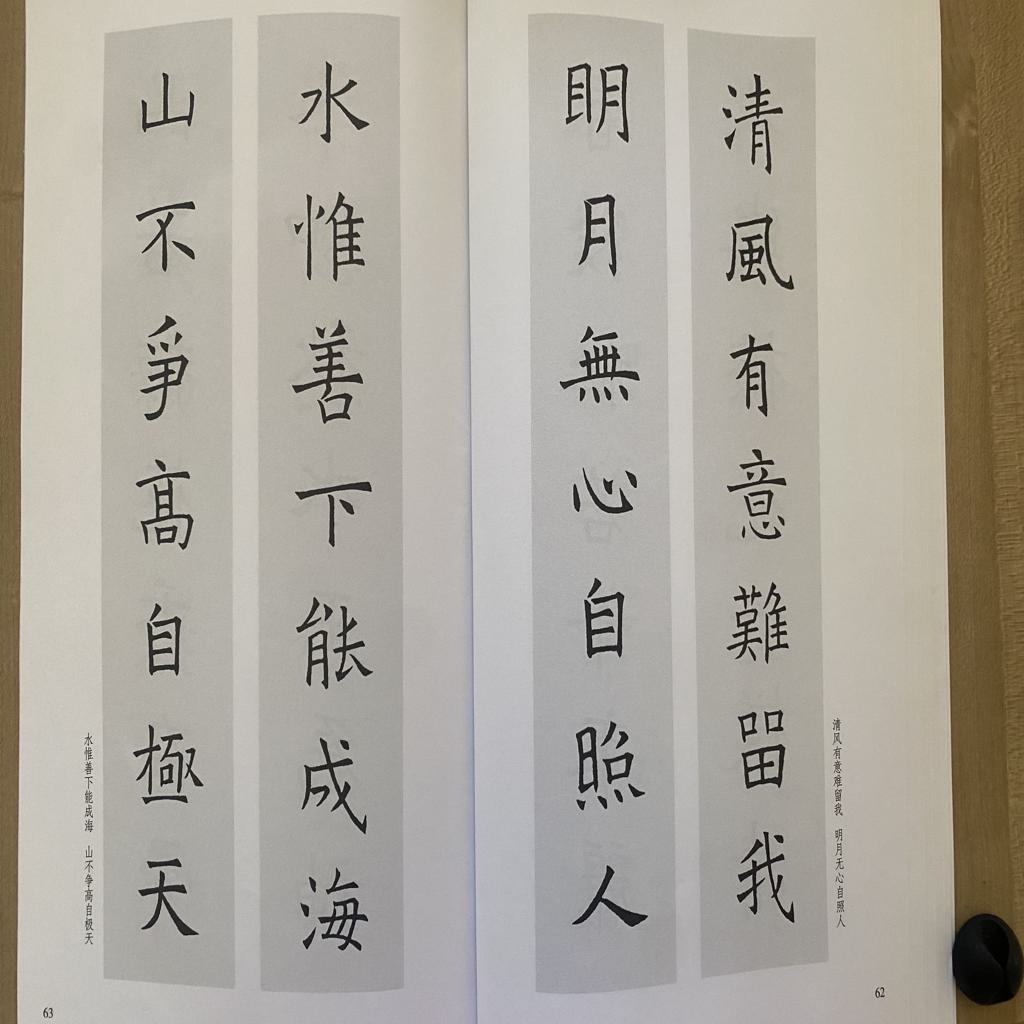 清風有意難畱我
明月無心自照人
清风有意难留我 明月无心自照人
62
水惟善下能成海
山不爭高自極天
水惟善下能成海 山不争高自极天
63